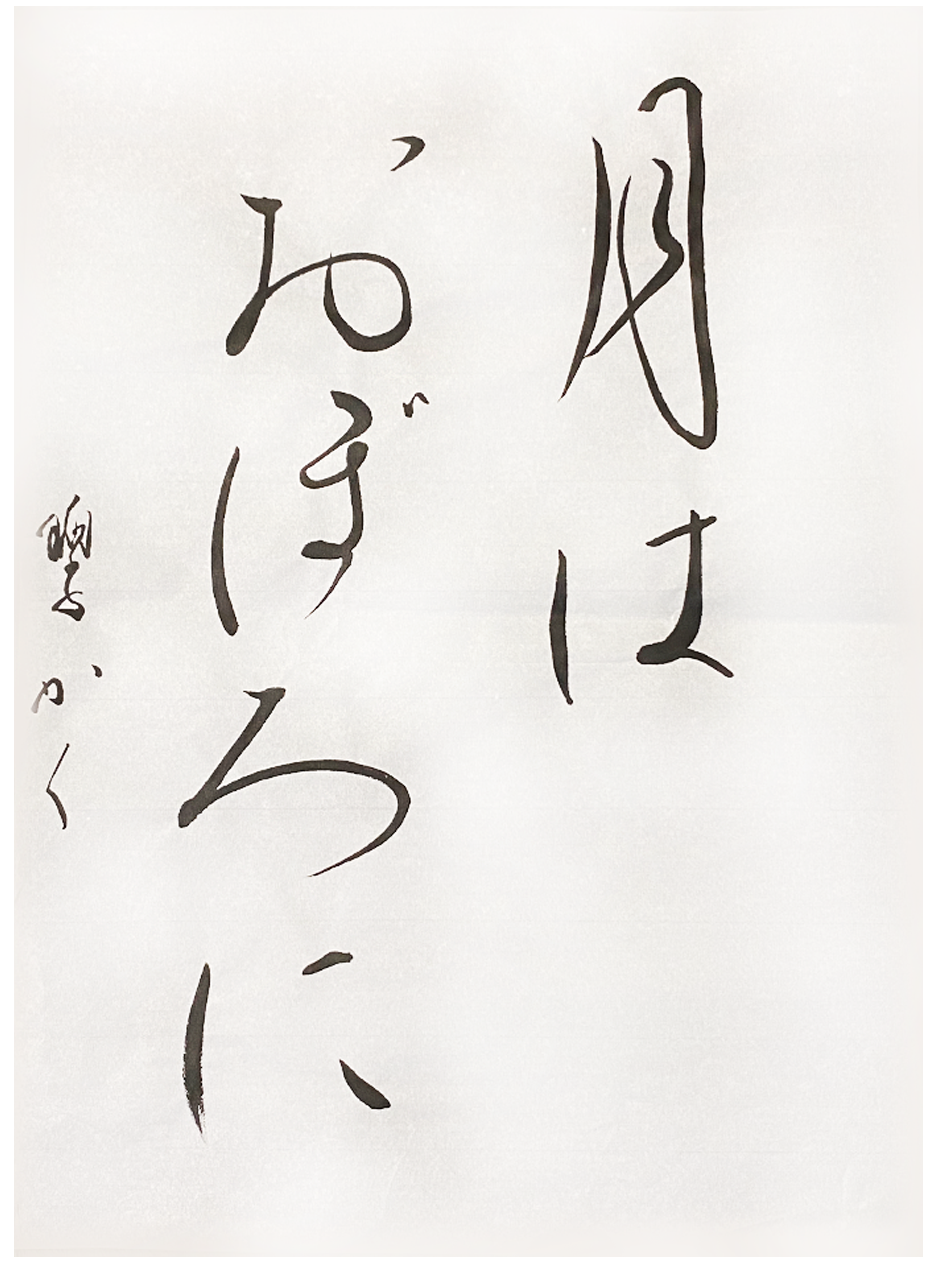 月は
おぼろに
かく